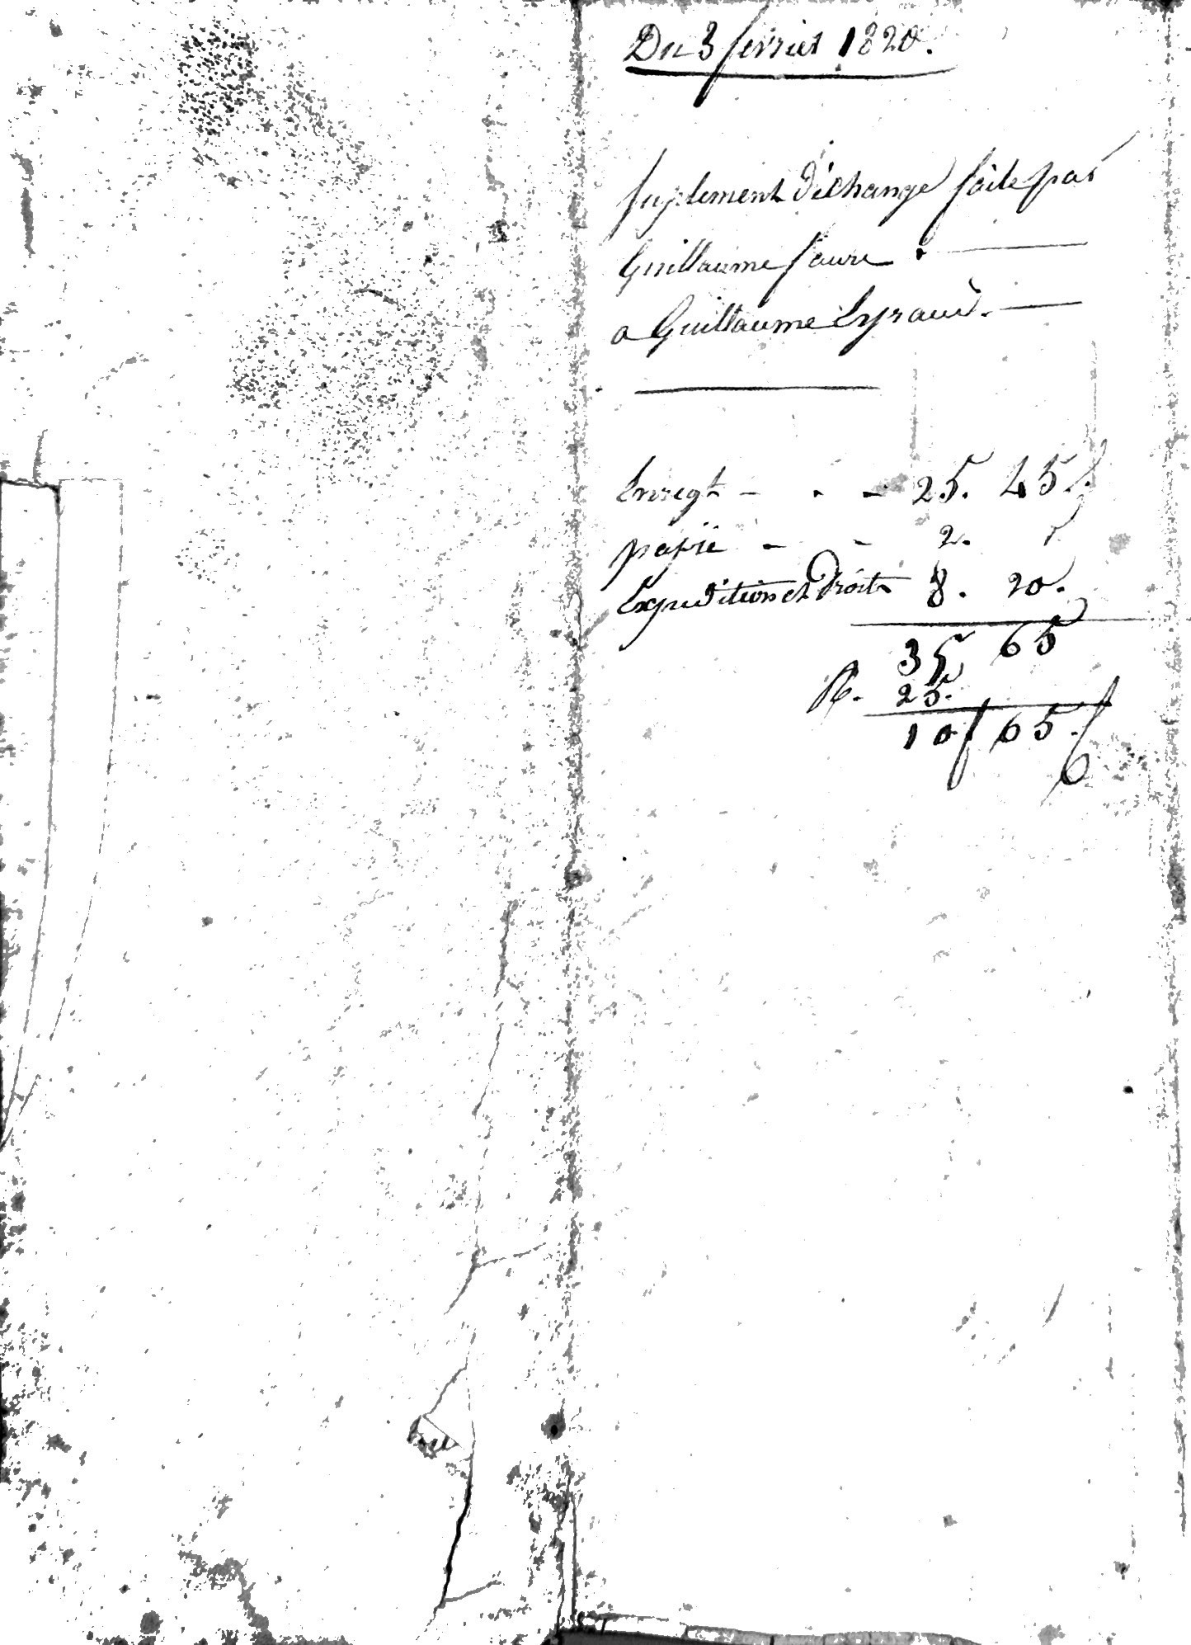 Du 3 fevrier 1820.
suplement d'echange faite par
Guillaume faure
a Guillaume Eyraud.
Enregt - . - 25. 45
papié - - 2.
Expedition et droits 8. 20.
35 65
R. 25.
10f 65